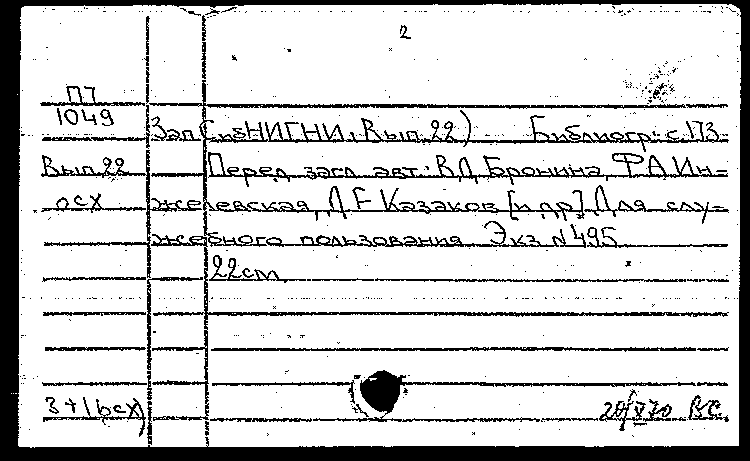 2
П7
1049
Зап. СибНИГНИ, Вып. 22) Библиогр: с. 173-
Вып. 22 Перед загл. авт.: В.Д. Бронина, Ф.А. Ин=
осх жевлевская, Д.Е. Казаков [и др.] Для слу=
жебного пользования Экз. N 495
22 см
3+1(осх) ВС